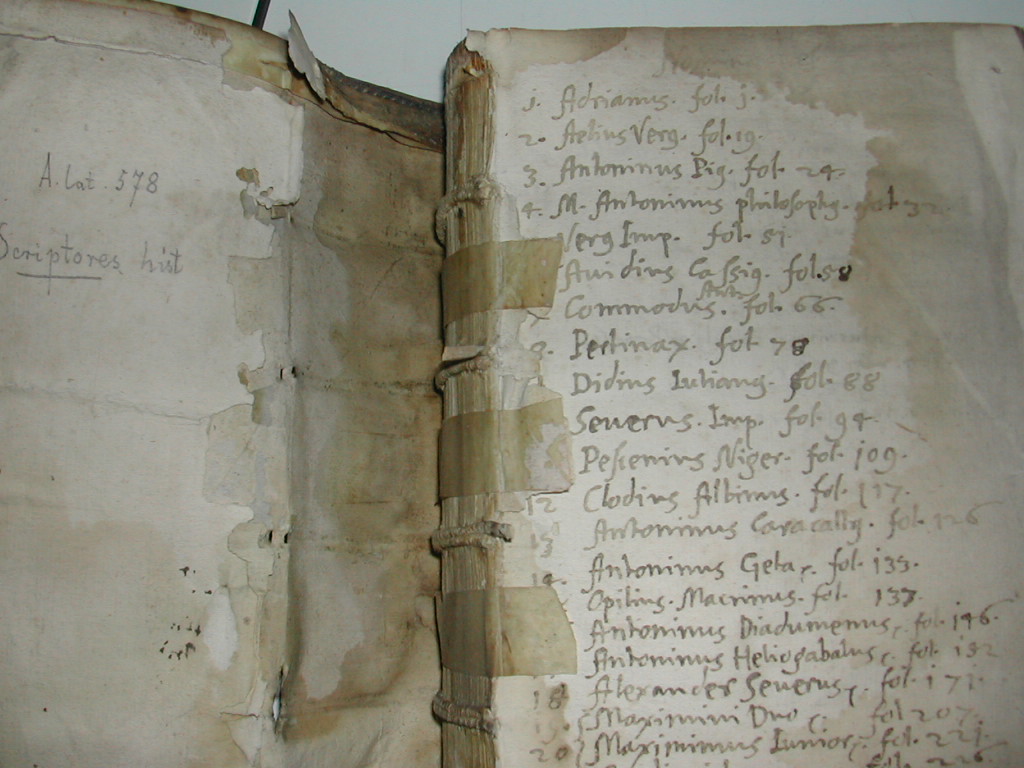 A. lat. 578
Scriptores hist
1. Adrianus. fol. 1.
2. Aelius Verꝰ. fol. 19.
3. Antoninus Piꝰ. fol. 24.
4. M. Antoninus philosophꝰ. fol. 32.
Verꝰ Imp. fol. 51.
Auidius Cassiꝰ. fol. 58
Commodus. fol. 66.
8. Pertinax. fol. 78
Didius Iulianꝰ. fol. 88
Seuerus. Imp. fol. 94.
Pescenius Niger. fol. 109.
12 Clodius Albinus. fol. 117.
13 Antoninus Caracallꝰ. fol. 126
14. Antoninus Geta. fol. 133.
Opilius. Macrinus. fol. 137
Antoninus Diadumenus, fol. 146.
Antoninus Heliogabalus, fol. 152
18 Alexander Seuerus, fol. 171.
Maximini Duo, fol 207.
20 Maximinus Iunior, fol. 221.